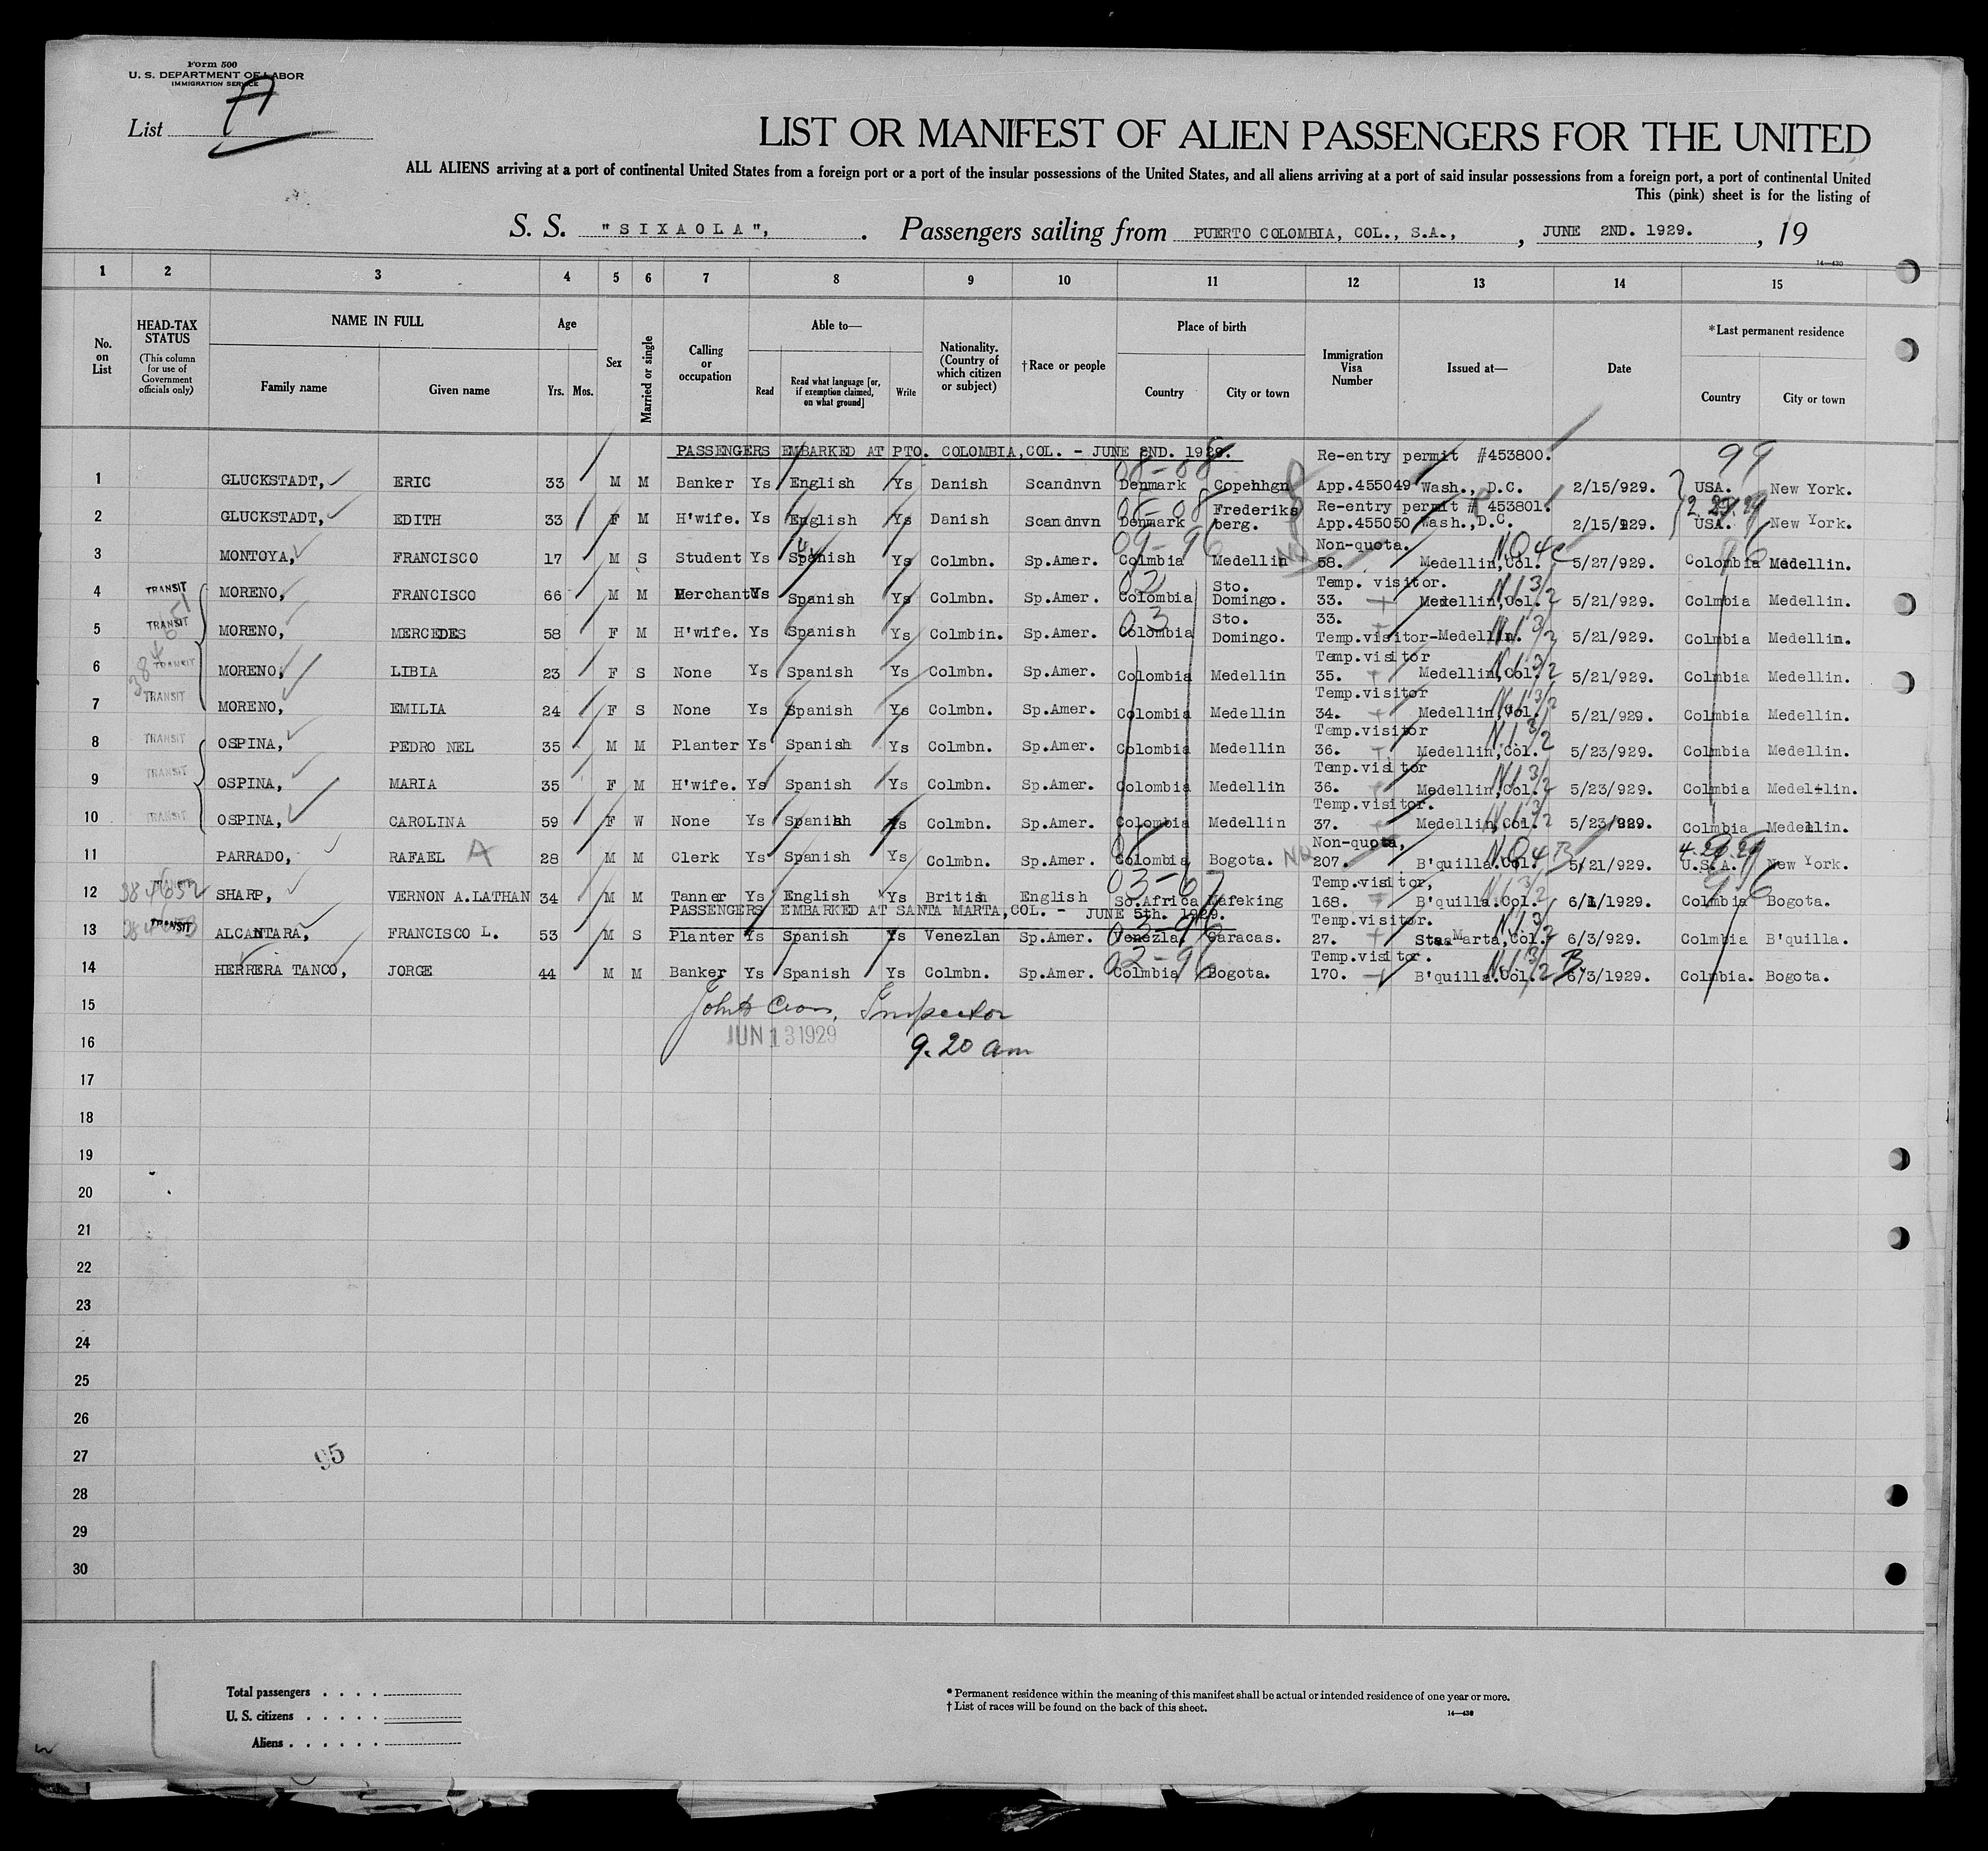 Form 500
U. S. DEPARTMENT OF LABOR
IMMIGRATION SERVICE
List
LIST OR MANIFEST OF ALIEN PASSENGERS FOR THE UNITED
ALL ALIENS arriving at a port of continental United States from a foreign port or a port of the insular possessions of the United States, and all aliens arriving at a port of said insular possessions from a foreign port, a port of continental United
This (pink) sheet is for the listing of
S. S. "SIXAOLA", . Passengers sailing from PUERTO COLOMBIA, COL., S.A., , JUNE 2ND. 1929. , 19
14—430
1 2 3 4 5 6 7 8 9 10 11 12 13 14 15
No. on List
HEAD-TAX STATUS
(This column for use of Government officials only)
NAME IN FULL
Family name Given name
Age
Yrs. Mos.
Sex
Married or single
Calling or occupation
Able to—
Read Read what language [or, if exemption claimed, on what ground] Write
Nationality. (Country of which citizen or subject)
†Race or people
Place of birth
Country City or town
Immigration Visa Number
Issued at—
Date
*Last permanent residence
Country City or town
PASSENGERS EMBARKED AT PTO. COLOMBIA,COL. - JUNE 2ND. 1929. Re-entry permit #453800. 99
08-08
1 GLUCKSTADT, ERIC 33 M M Banker Ys English Ys Danish Scandnvn Denmark Copenhgn App.455049 Wash., D.C. 2/15/929. USA. New York.
08-08 Frederiks Re-entry permit # 453801.
2 GLUCKSTADT, EDITH 33 F M H'wife. Ys English Ys Danish Scandnvn Denmark berg. App.455050 Wash.,D.C. 2/15/929. USA. New York.
09-96 Non-quota. NQ4c 96
3 MONTOYA, FRANCISCO 17 M S Student Ys Spanish Ys Colmbn. Sp.Amer. Colmbia Medellin 58. Medellin,Col. 5/27/929. Colombia Medellin.
02 Sto. Temp. visitor. N13/2
4 TRANSIT MORENO, FRANCISCO 66 M M Merchant Ys Spanish Ys Colmbn. Sp.Amer. Colombia Domingo. 33. Medellin,Col. 5/21/929. Colmbia Medellin.
03 Sto. 33. N13/2
5 TRANSIT MORENO, MERCEDES 58 F M H'wife. Ys Spanish Ys Colmbin. Sp.Amer. Colombia Domingo. Temp.visitor-Medellin. 5/21/929. Colmbia Medellin.
384651
Temp.visitor N13/2
6 TRANSIT MORENO, LIBIA 23 F S None Ys Spanish Ys Colmbn. Sp.Amer. Colombia Medellin 35. Medellin,Col. 5/21/929. Colmbia Medellin.
Temp.visitor N13/2
7 TRANSIT MORENO, EMILIA 24 F S None Ys Spanish Ys Colmbn. Sp.Amer. Colombia Medellin 34. Medellin,Col. 5/21/929. Colmbia Medellin.
Temp.visitor N13/2
8 TRANSIT OSPINA, PEDRO NEL 35 M M Planter Ys Spanish Ys Colmbn. Sp.Amer. Colombia Medellin 36. Medellin,Col. 5/23/929. Colmbia Medellin.
Temp.visitor N13/2
9 TRANSIT OSPINA, MARIA 35 F M H'wife. Ys Spanish Ys Colmbn. Sp.Amer. Colombia Medellin 36. Medellin,Col. 5/23/929. Colmbia Medellin.
Temp.visitor. N13/2
10 TRANSIT OSPINA, CAROLINA 59 F W None Ys Spanish Ys Colmbn. Sp.Amer. Colombia Medellin 37. Medellin,Col. 5/23/929. Colmbia Medellin.
Non-quota, NQ4B
11 PARRADO, RAFAEL A 28 M M Clerk Ys Spanish Ys Colmbn. Sp.Amer. Colombia Bogota. NQ 207. B'quilla.Col. 5/21/929. U.S.A. New York.
03-67 Temp.visitor, N13/2 96
12 384652 SHARP, VERNON A.LATHAN 34 M M Tanner Ys English Ys British English So.Africa Mafeking 168. B'quilla.Col. 6/1/1929. Colmbia Bogota.
PASSENGERS EMBARKED AT SANTA MARTA,COL. - JUNE 5th. 1929.
03-96 Temp.visitor. N13/2
13 TRANSIT 384653 ALCANTARA, FRANCISCO L. 53 M S Planter Ys Spanish Ys Venezlan Sp.Amer. Venezla. Caracas. 27. Sta Marta,Col. 6/3/929. Colmbia B'quilla.
02-96 Temp.visitor. N13/2 B
14 HERRERA TANCO, JORGE 44 M M Banker Ys Spanish Ys Colmbn. Sp.Amer. Colmbia Bogota. 170. B'quilla.Col. 6/3/1929. Colmbia. Bogota.
15 Inspector
16 JUN 13 1929 9.20 am
17
18
19
20
21
22
23
24
25
26
27 95
28
29
30
Total passengers . . . .
U. S. citizens . . . . .
Aliens . . . . . .
* Permanent residence within the meaning of this manifest shall be actual or intended residence of one year or more.
† List of races will be found on the back of this sheet.
14—430